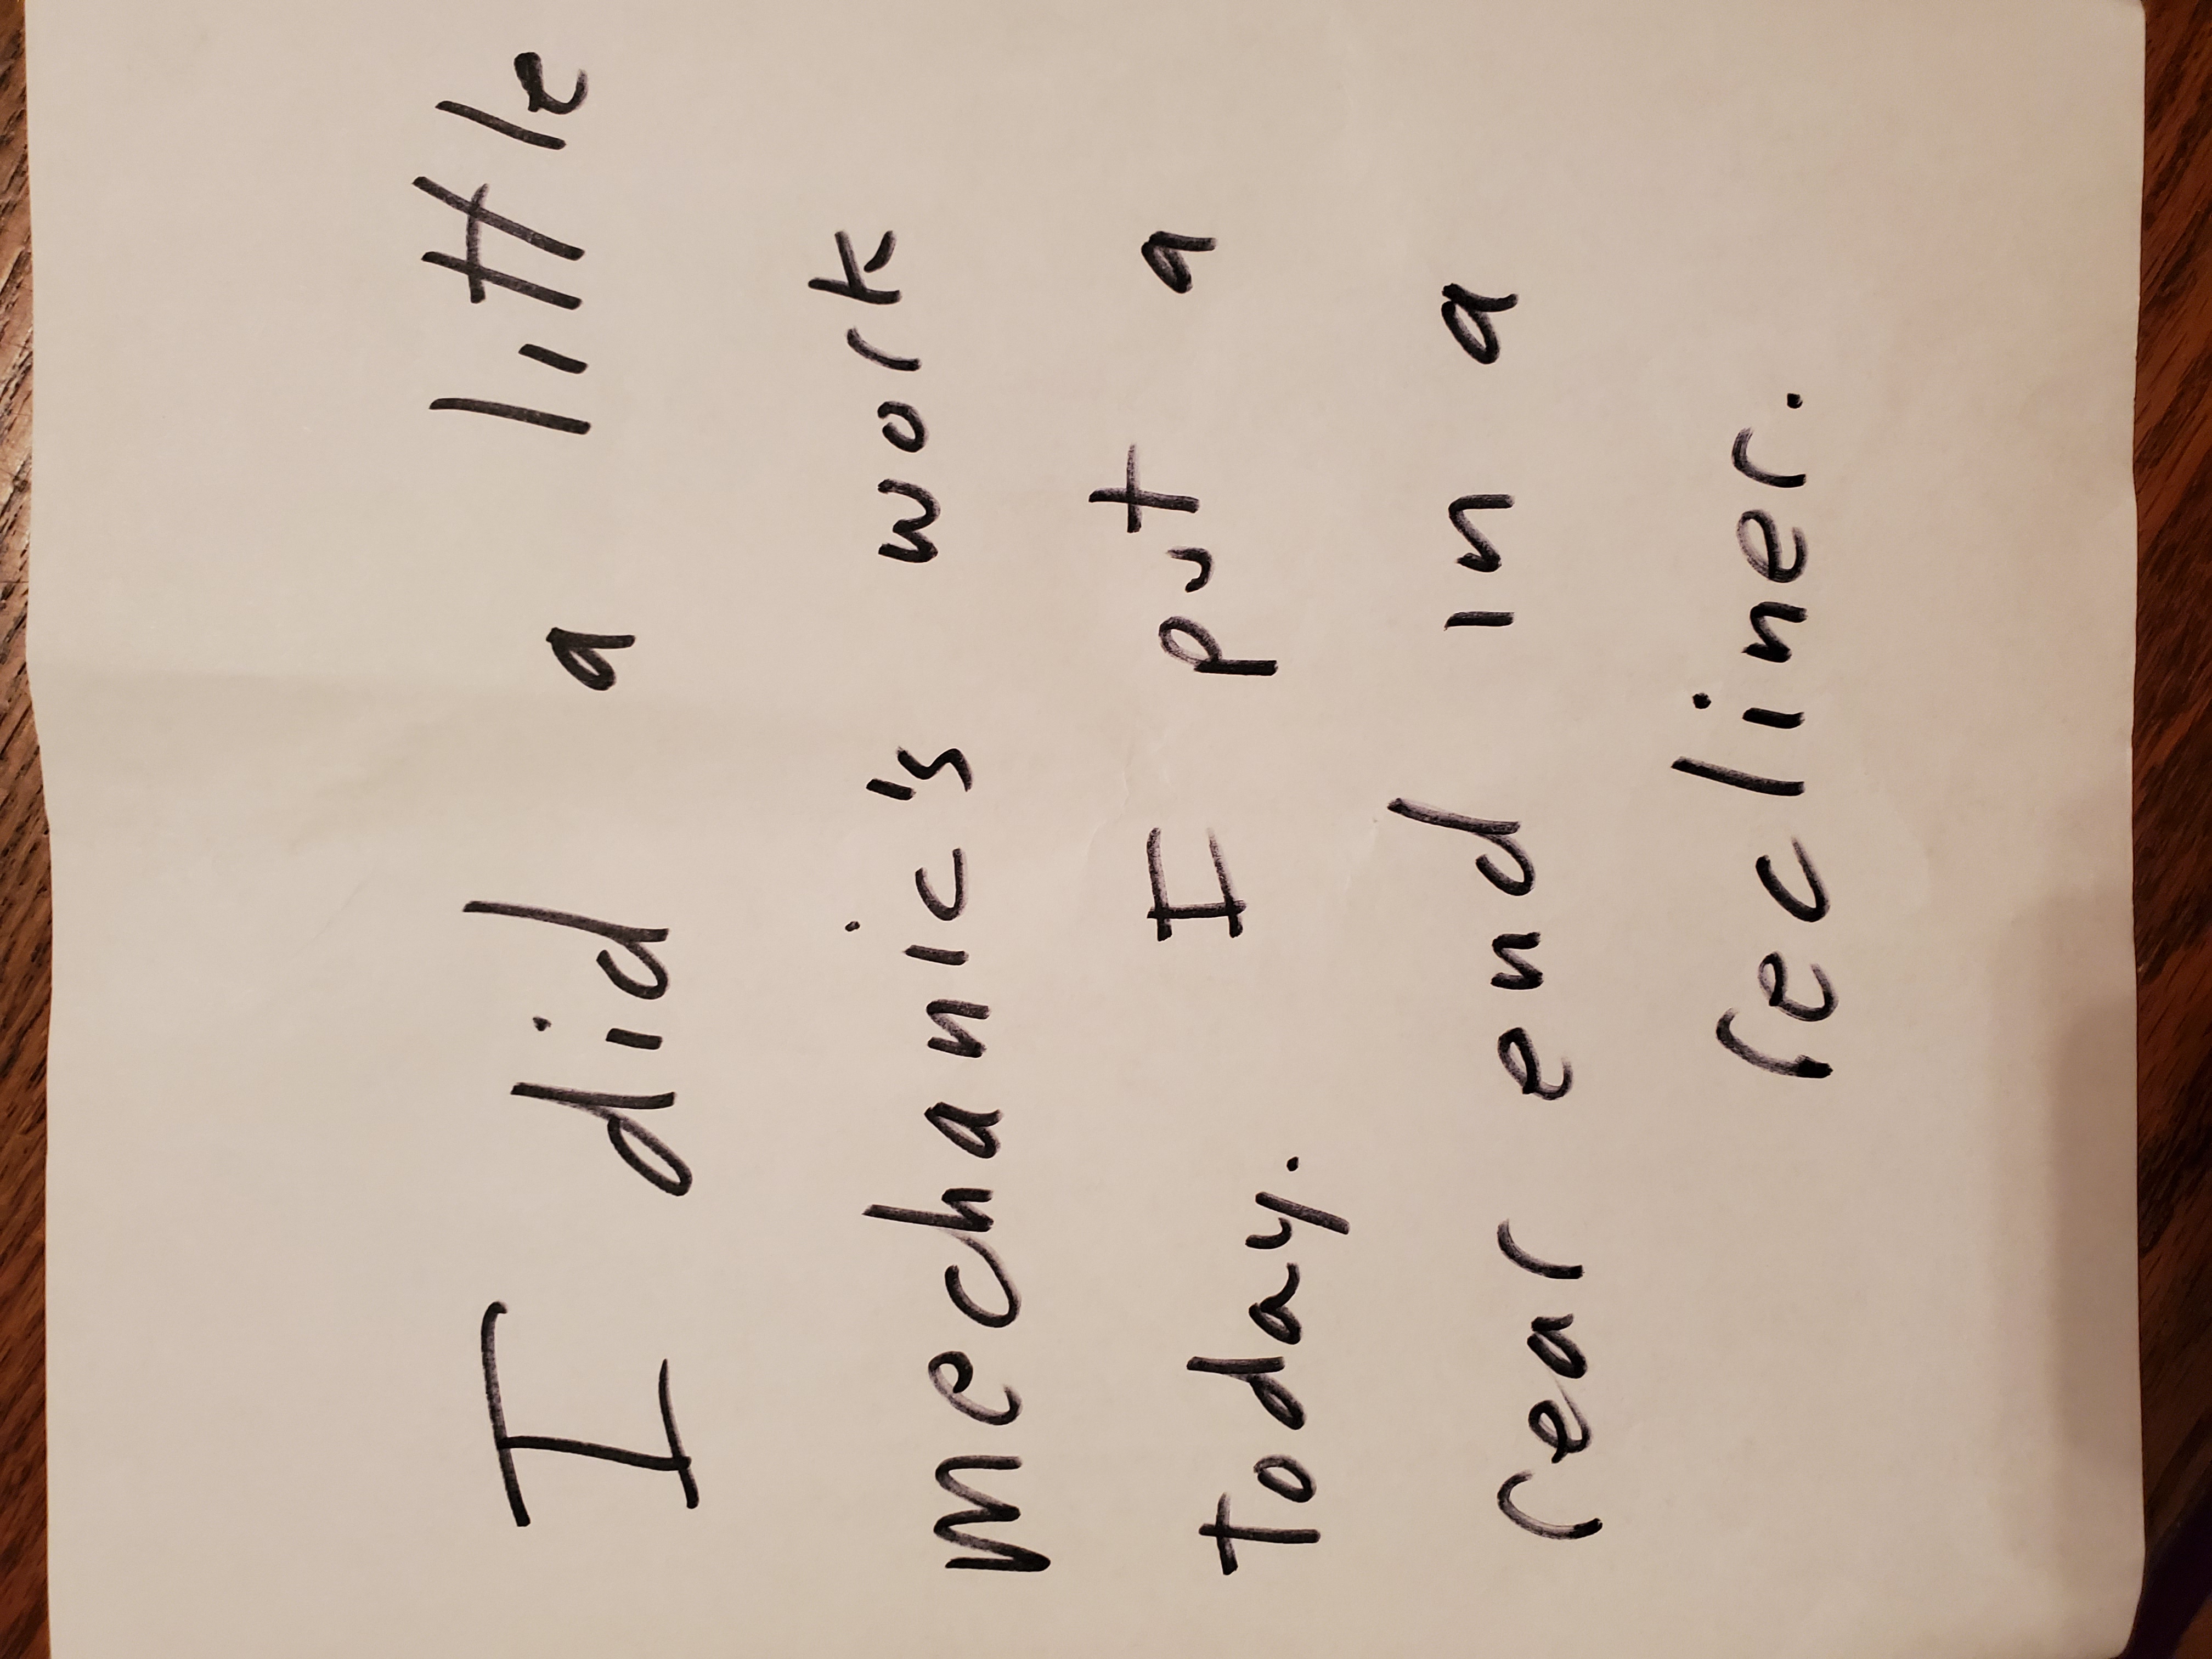 I did a little
mechanic's work
today. I put a
rear end in a
recliner.